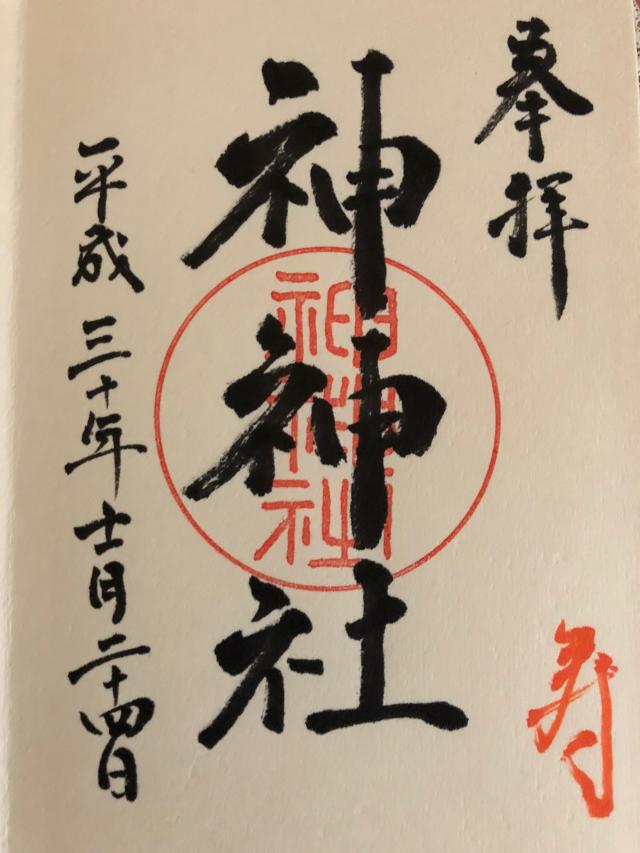 奉拝
神神社
神神社
平成三十年十一月二十四日
寿